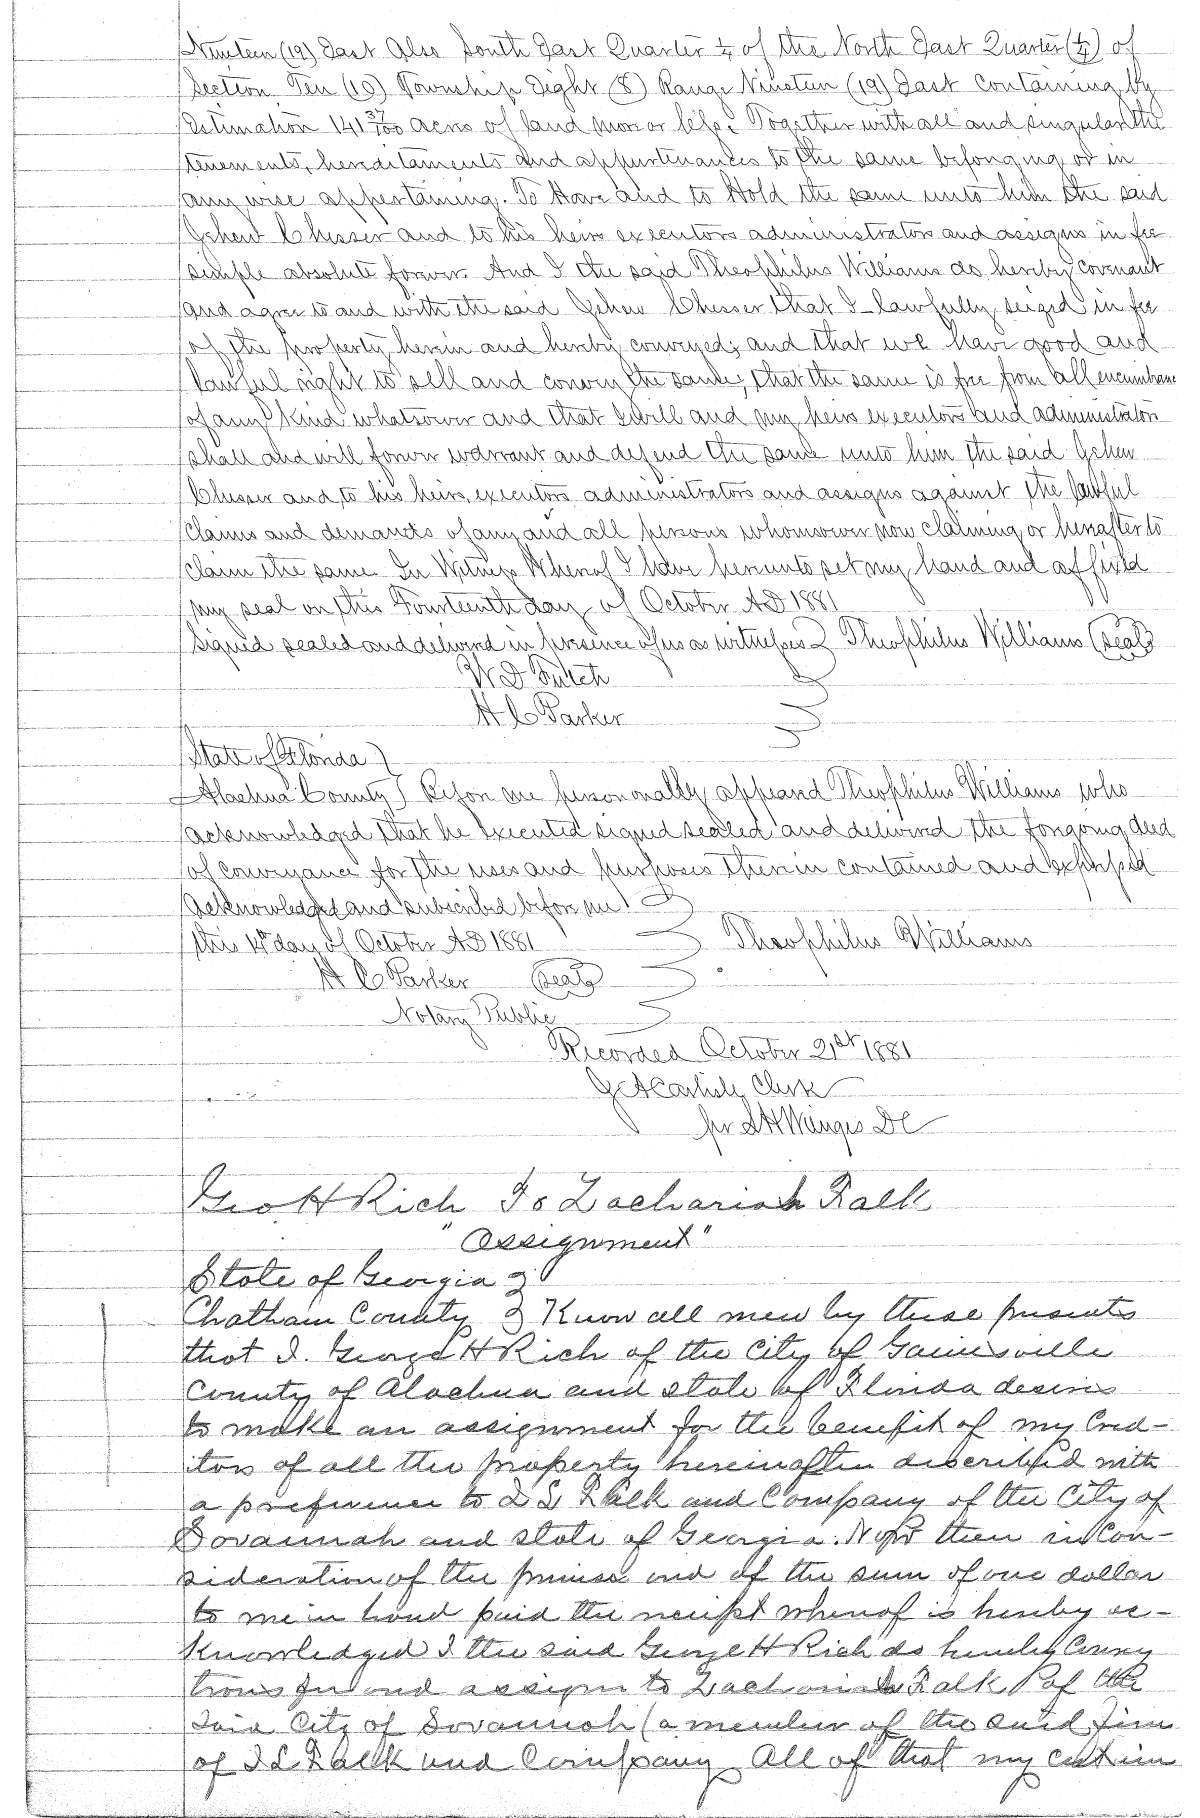 Nineteen (19) East Also South East Quarter 1/4 of the North East Quarter (1/4) of
Section Ten (10) Township Eight (8) Range Nineteen (19) East Containing by
Estimation 141 37/100 acres of land more or less. Together with all and singular the
tenements, hereditaments and appurtenances to the same belonging or in
any wise appertaining. To Have and to Hold the same unto him the said
Jehew Chesser and to his heirs executors administrators and assigns in fee
simple absolute forever. And I the said Theophilus Williams do hereby covenant
and agree to and with the said Jehew Chesser that I lawfully seized in fee
of the property herein and hereby conveyed; and that we have good and
lawful right to sell and convey the same; that the same is free from all encumbrance
of any kind whatsoever and that I will and my heirs executors and administrators
shall and will forever warrant and defend the same unto him the said Jehew
Chesser and to his heirs, executors administrators and assigns against the lawful
claims and demands of any and all persons whomsoever now claiming or hereafter to
claim the same. In Witness Whereof I have hereunto set my hand and affixed
my seal on this Fourteenth day of October AD 1881
Signed sealed and delivered in presence of us as witnesses } Theophilus Williams (seal)
W D Futch
H C Parker
State of Florida }
Alachua County } Before me personally appeared Theophilus Williams who
acknowledged that he executed signed sealed and delivered the foregoing deed
of conveyance for the uses and purposes therein contained and expressed
Acknowledged and subscribed before me
this 14th day of October AD 1881 Theophilus Williams
H C Parker (seal)
Notary Public
Recorded October 21st 1881
J A Carlisle Clerk
per S H Wienges DC
Geo H Rich To Zachariah Falk
"Assignment"
State of Georgia }
Chatham County } Know all men by these presents
that I. George H Rich of the City of Gainesville
County of Alachua and state of Florida desires
to make an assignment for the benefit of my Cred-
itors of all the property hereinafter described with
a preference to I L Falk and Company of the City of
Savannah and state of Georgia. Now then in Con-
sideration of the premises and of the sum of one dollar
to me in hand paid the receipt whereof is hereby ac-
knowledged I the said George H Rich do hereby Convey
transfer and assign to Zachariah Falk of the
said City of Savannah (a member of the said firm
of I L Falk and Company All of that my certain